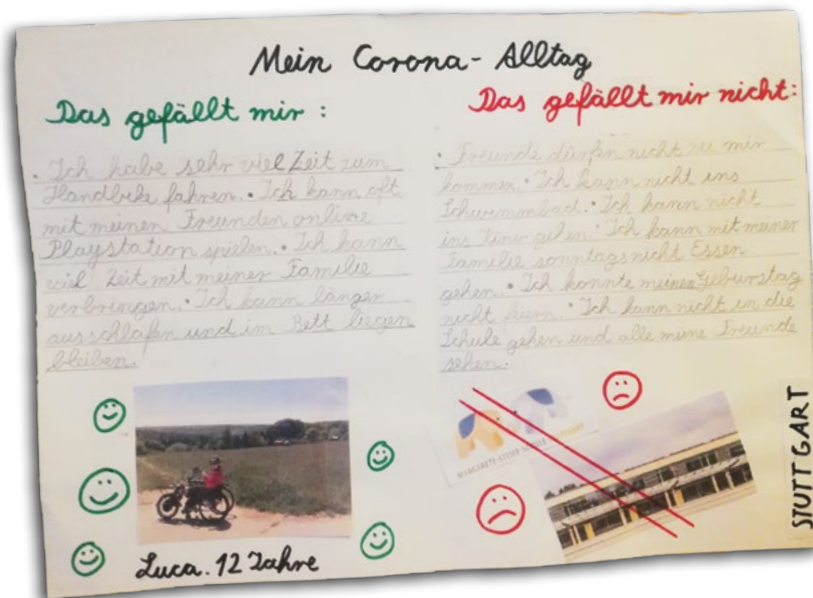 Mein Corona-Alltag
Das gefällt mir:
• Ich habe sehr viel Zeit zum
Handbike fahren. • Ich kann oft
mit meinen Freunden online
Playstation spielen. • Ich kann
viel Zeit mit meiner Familie
verbringen. • Ich kann länger
ausschlafen und im Bett liegen
bleiben.
Luca. 12 Jahre
Das gefällt mir nicht:
• Freunde dürfen nicht zu mir
kommen. • Ich kann nicht ins
Schwimmbad. • Ich kann nicht
ins Kino gehen. • Ich kann mit meiner
Familie sonntags nicht Essen
gehen. • Ich konnte meinen Geburstag
nicht feiern. • Ich kann nicht in die
Schule gehen und alle meine Freunde
sehen.
MARGARETE-STEIFF-SCHULE
STUTTGART